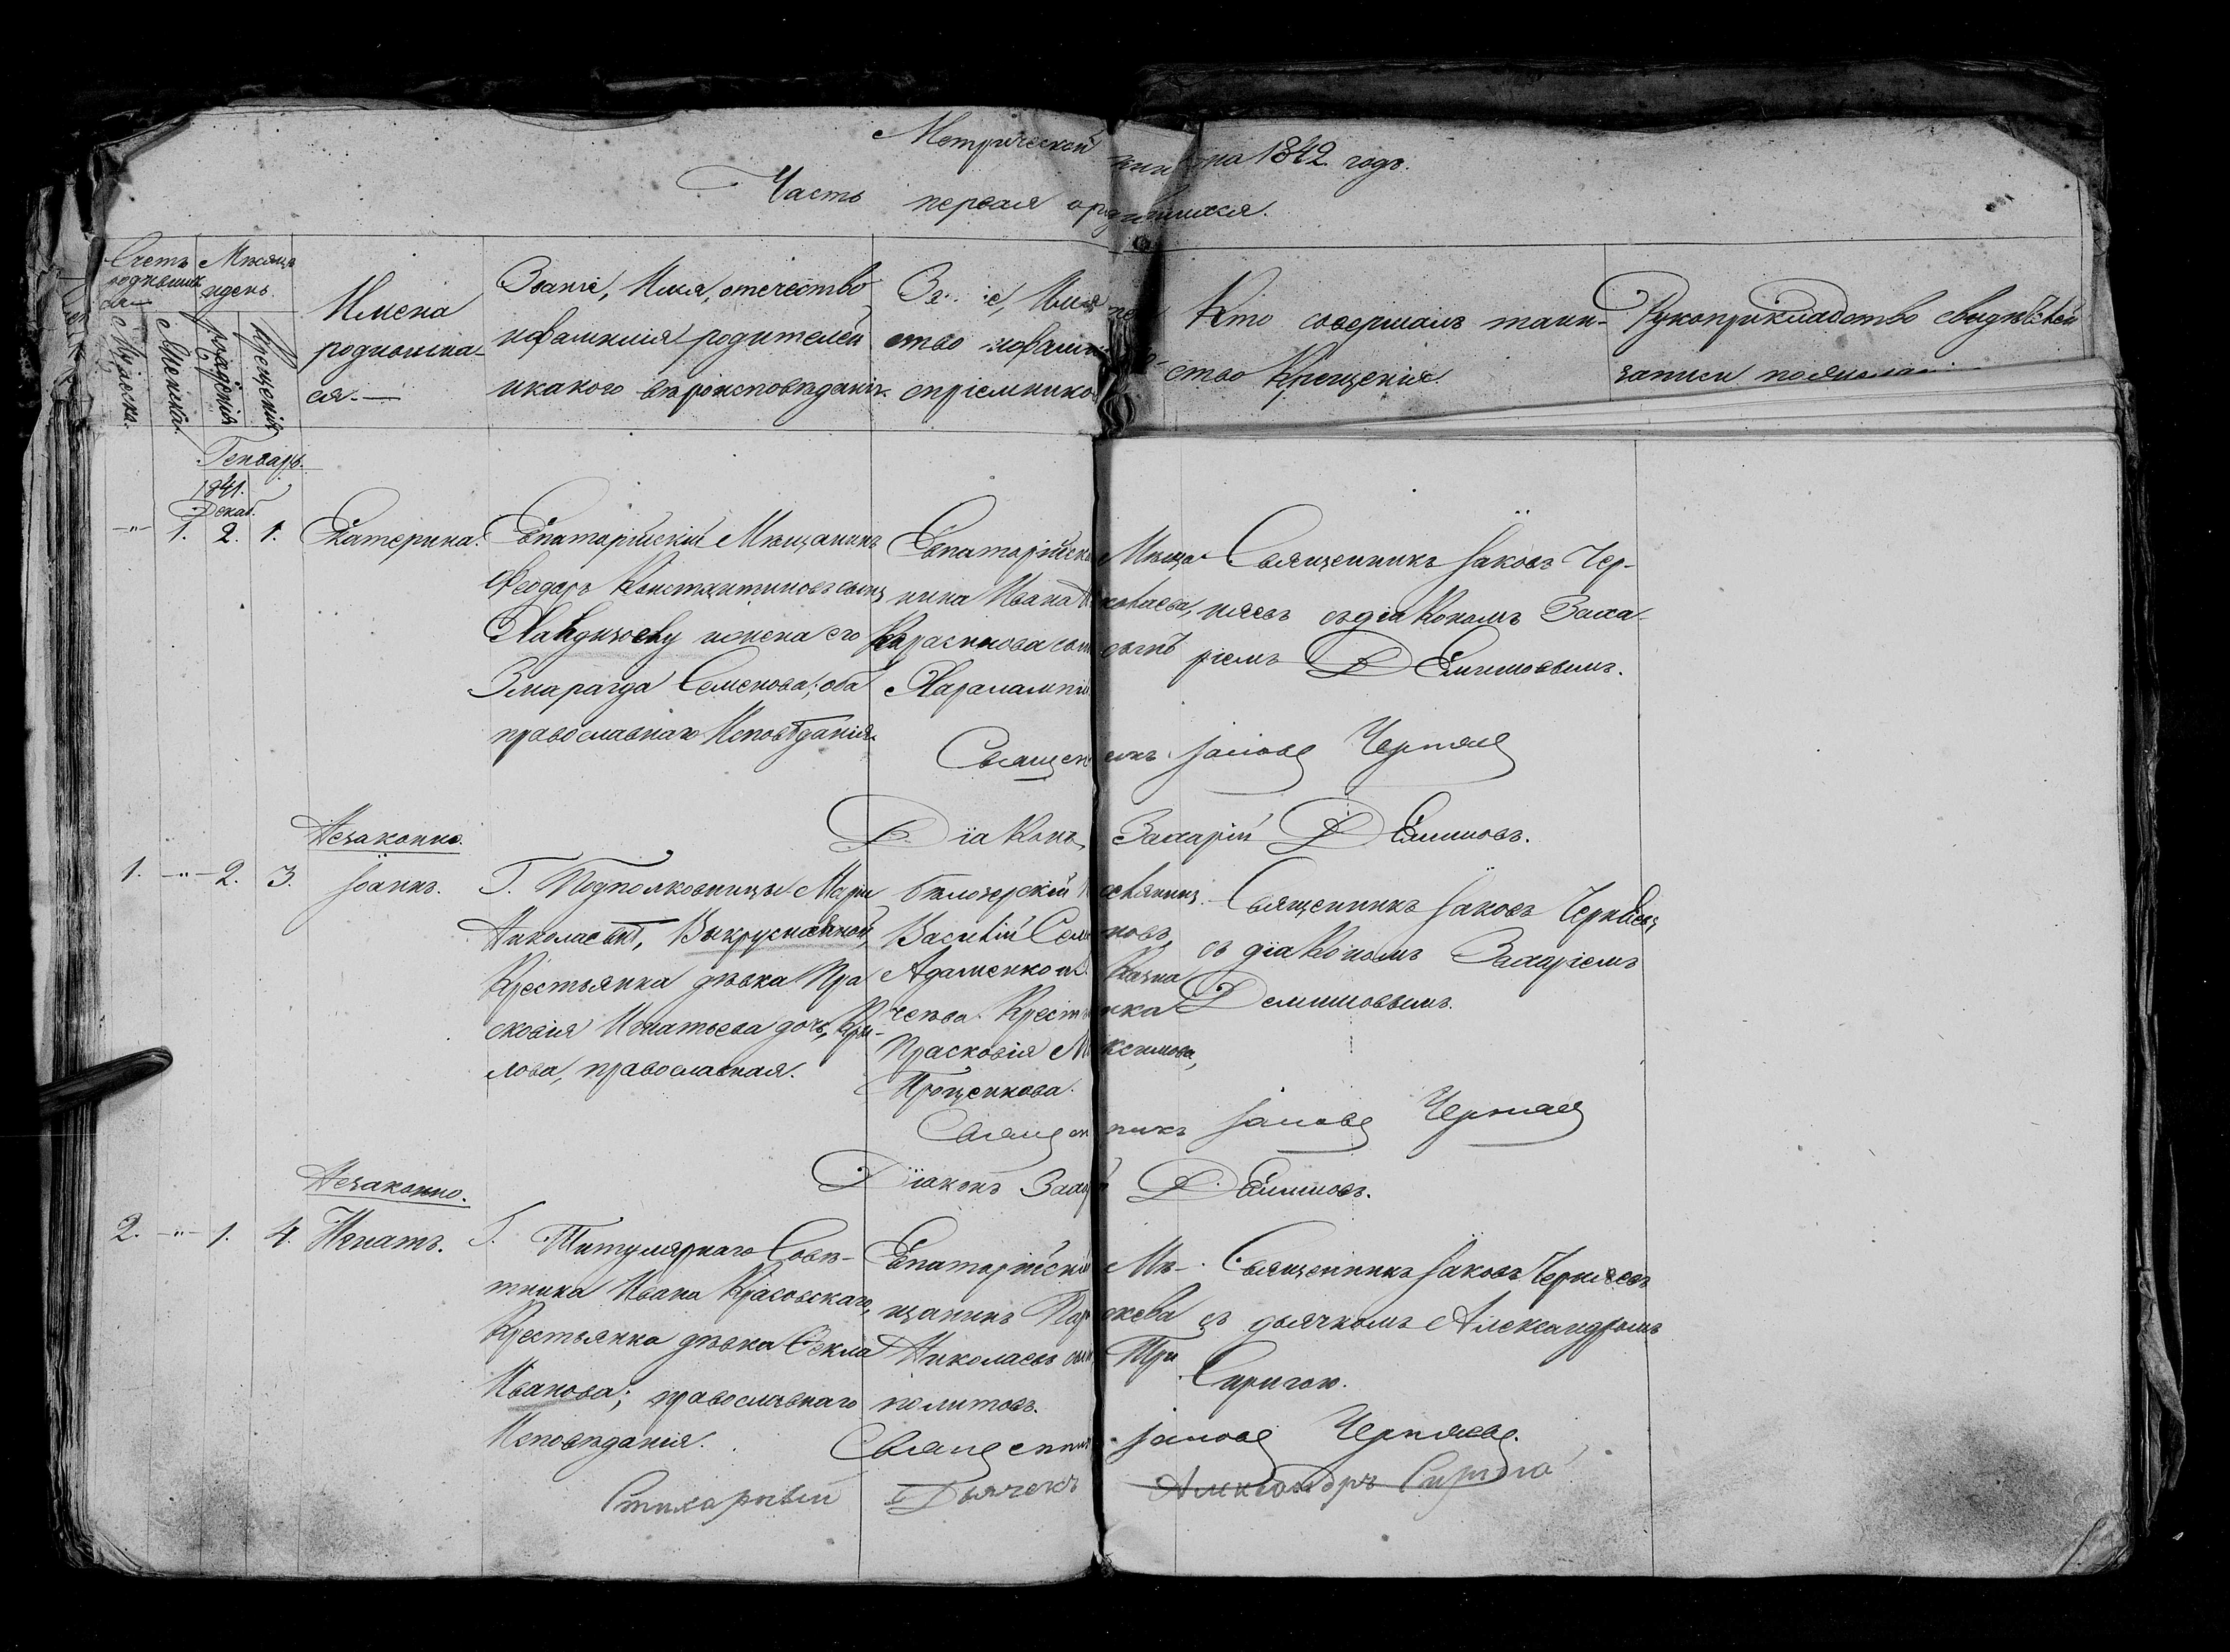 Метрической книги на 1842 годъ.
Часть первая о родившихся.
Счетъ родившихся
Мужеска.
Женска.
Мѣсяцъ и день
рожденія
крещенія
Имена родившихся.
Званіе, Имя, отчество
и фамилія родителей
и какого вѣроисповѣданія.
Званіе, Имя, отче-
ство и фамилія во-
спріемниковъ
Кто совершалъ таин-
ство Крещенія.
Рукоприкладство свидѣтелей
записи по желанію
Генварь.
1841.
Декаб.
-"- 1. 2. 1. Екатерина.
Евпаторійскій Мѣщанинъ
Феодоръ Константиновъ сынъ
и жена его
Змарагда Семенова; оба
православнаго Исповѣданія.
Евпаторійскаго Мѣща-
нина Ивана Николаева,
Карасинова сынъ
Харалампій
Священникъ Іаковъ Чер-
няевъ съ діакономъ Заха-
ріемъ Демишовымъ.
Священникъ Іаковъ Черняев
Діаконъ Захарій Демишовъ.
Незаконно.
1. -"- 2. 3. Іоаннъ.
Г. Подполковницы Маріи
Николаевны,
Крестьянка дѣвка Пра
сковія Игнатьева дочь, Кри-
лова, православная.
Бѣлозерскій
Василій Семеновъ,
Адаменко и
Крестьянка
Прасковія Максимова,
Проценкова.
Священникъ Іаковъ Черняевъ
съ діакономъ Захаріемъ
Демишовымъ.
Священникъ Іаковъ Черняев
Діаконъ Захарій Демишовъ.
Незаконно.
2. -"- 1. 4. Игнатъ.
Г. Титулярнаго Совѣ-
тника Ивана Красовскаго,
Крестьянка дѣвка Ѳекла
Иванова; православнаго
Исповѣданія.
Евпаторійскій Мѣ-
щанинъ
Николаевъ сынъ Три
политовъ.
Священникъ Іаковъ Черняевъ
съ дьячкомъ Александромъ
Сиригою.
Священникъ Іаковъ Черняевъ.
Стихарный Дьячекъ Александръ Сирига